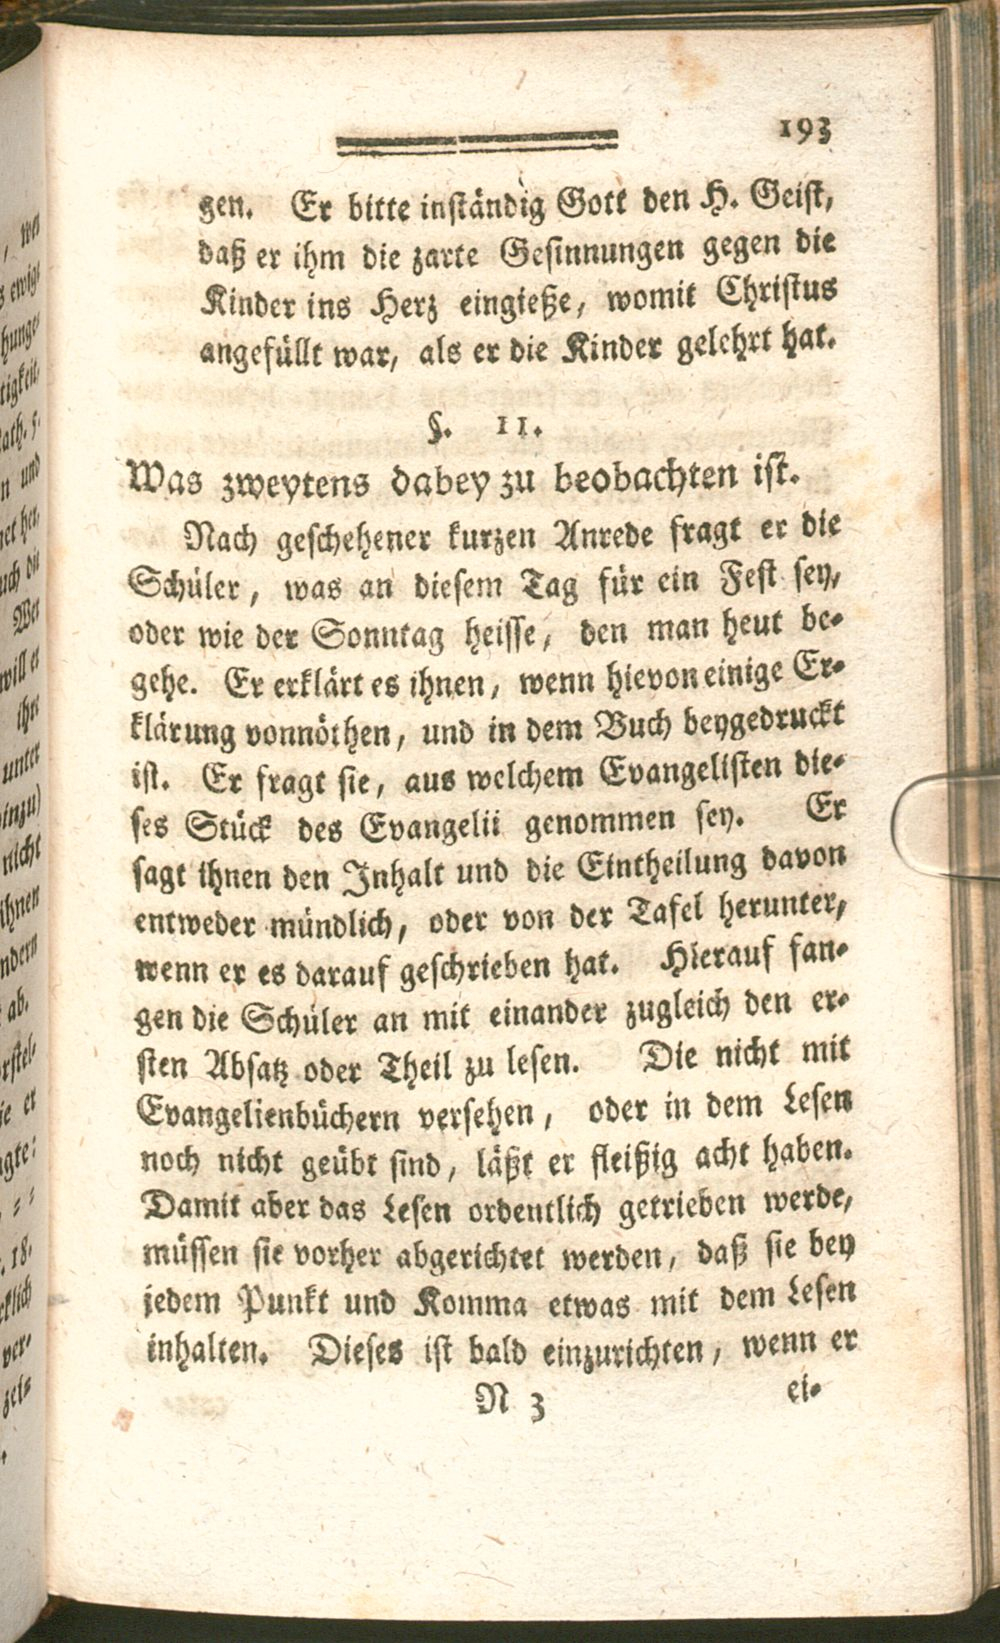 193
gen. Er bitte inständig Gott den H. Geist,
daß er ihm die zarte Gesinnungen gegen die
Kinder ins Herz eingieße, womit Christus
angefüllt war, als er die Kinder gelehrt hat.
§. 11.
Was zweytens dabey zu beobachten ist.
Nach geschehener kurzen Anrede fragt er die
Schüler, was an diesem Tag für ein Fest sey,
oder wie der Sonntag heisse, den man heut be-
gehe. Er erklärt es ihnen, wenn hievon einige Er-
klärung vonnöthen, und in dem Buch beygedruckt
ist. Er fragt sie, aus welchem Evangelisten die-
ses Stück des Evangelii genommen sey. Er
sagt ihnen den Inhalt und die Eintheilung davon
entweder mündlich, oder von der Tafel herunter,
wenn er es darauf geschrieben hat. Hierauf fan-
gen die Schüler an mit einander zugleich den er-
sten Absatz oder Theil zu lesen. Die nicht mit
Evangelienbüchern versehen, oder in dem Lesen
noch nicht geübt sind, läßt er fleißig acht haben.
Damit aber das Lesen ordentlich getrieben werde,
müssen sie vorher abgerichtet werden, daß sie bey
jedem Punkt und Komma etwas mit dem Lesen
inhalten. Dieses ist bald einzurichten, wenn er
N 3 ei-